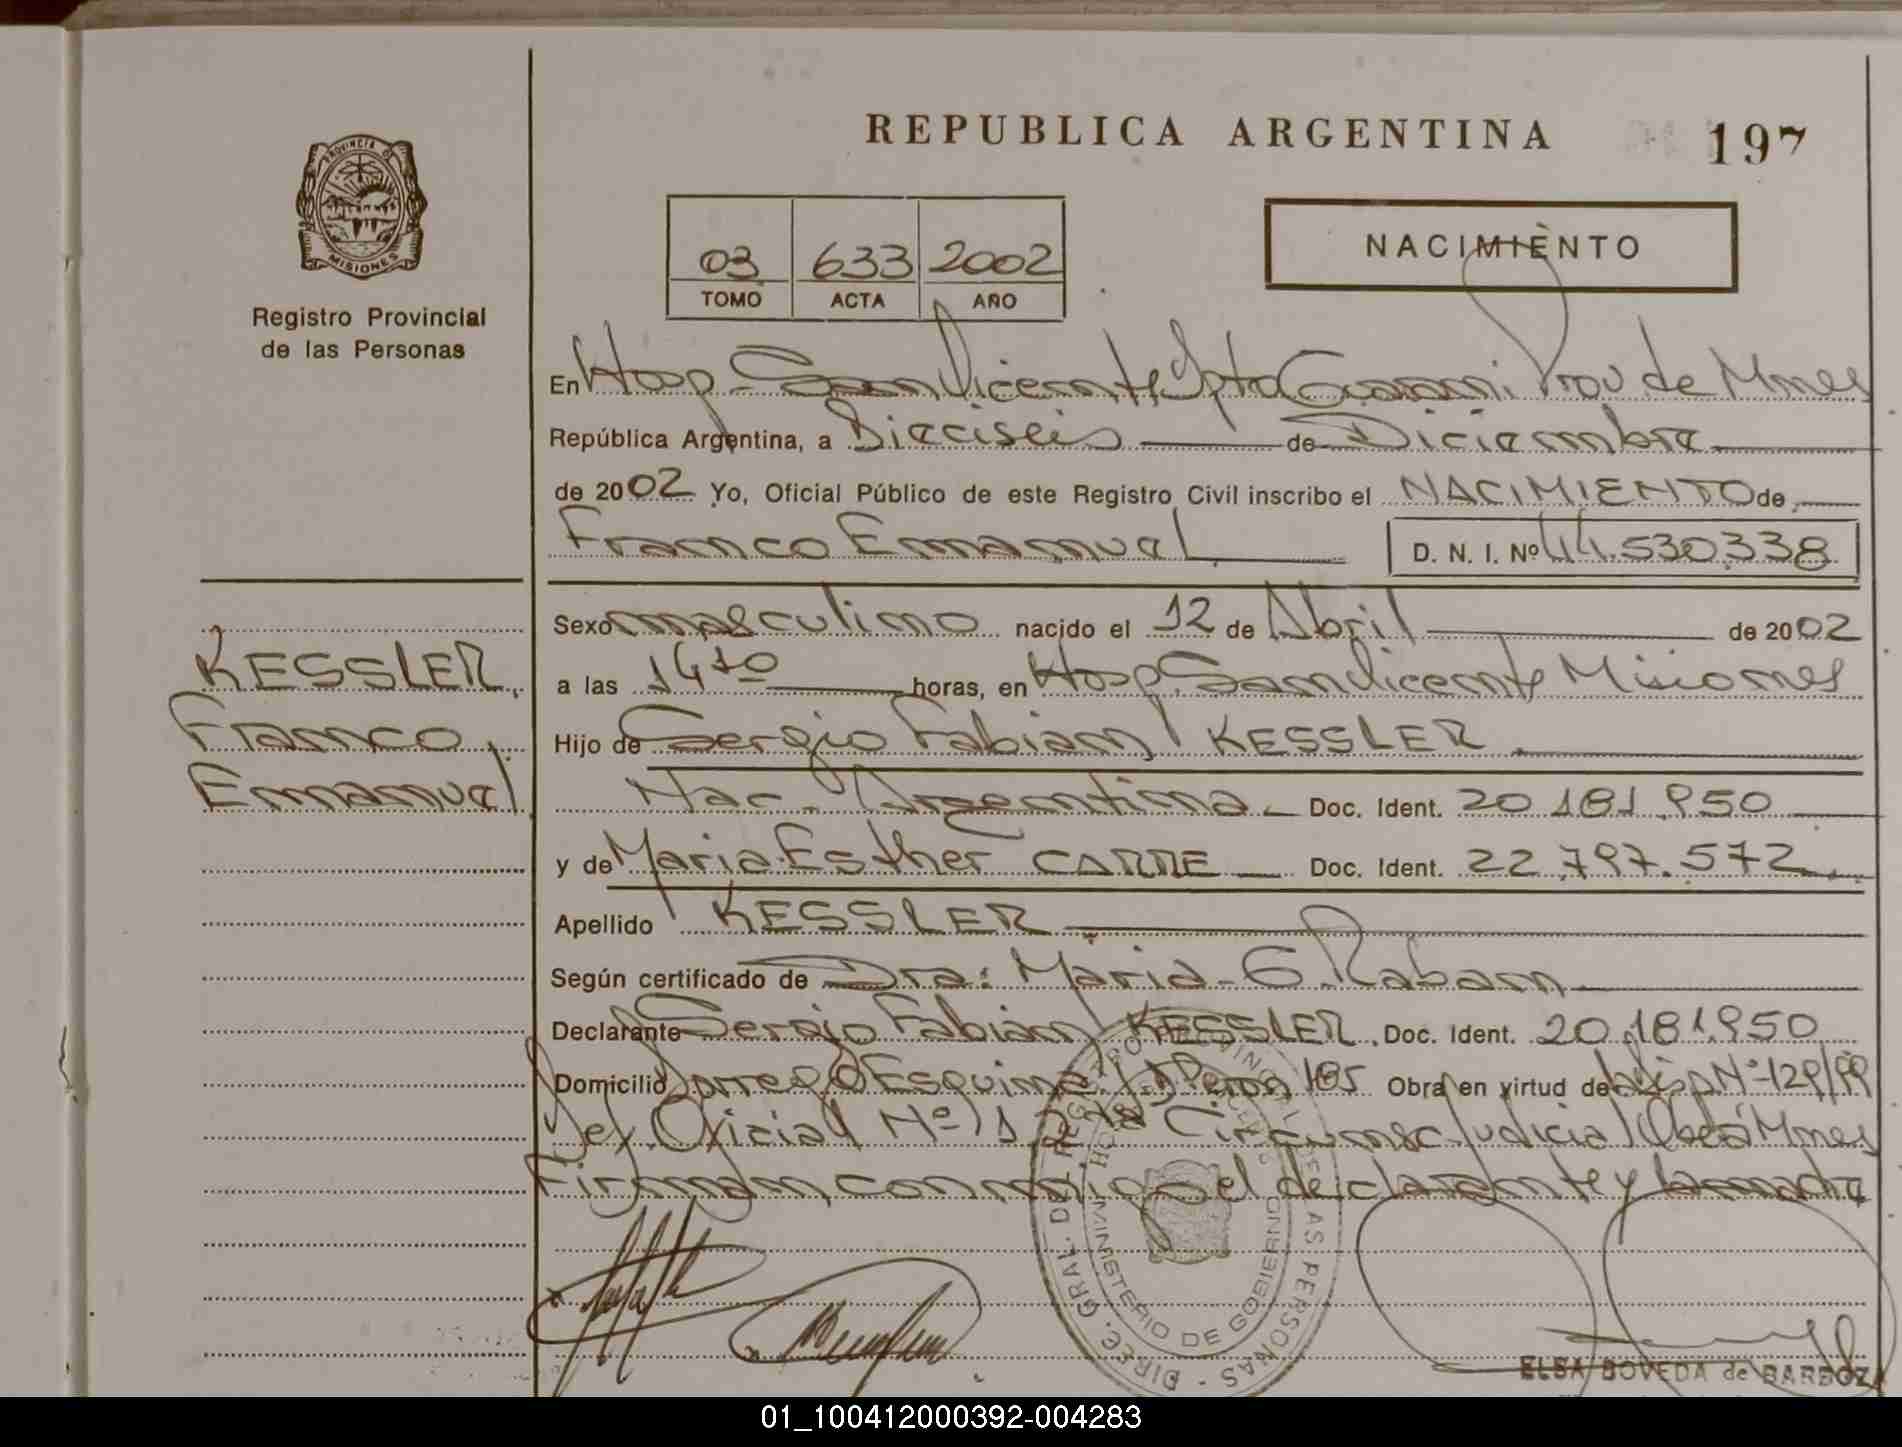 REPUBLICA ARGENTINA
197
PROVINCIA DE
MISIONES
Registro Provincial
de las Personas
03 633 2002
TOMO ACTA AÑO
NACIMIENTO
En Hosp. San Vicente Dpto Guarani Prov. de Mnes
República Argentina, a Dieciseis de Diciembre
de 2002 Yo, Oficial Público de este Registro Civil inscribo el NACIMIENTO de
Franco Emanuel D. N. I. Nº 44.530.338
Sexo masculino nacido el 12 de Abril de 2002
KESSLER
Franco
Emanuel
a las 14 10 horas, en Hosp. San Vicente Misiones
Hijo de Sergio Fabian KESSLER
Nac. Argentina Doc. Ident. 20.181.950
y de Maria Esther CARRE Doc. Ident. 22.797.572
Apellido KESSLER
Según certificado de Dra: Maria G. Raban
Declarante Sergio Fabian KESSLER. Doc. Ident. 20.181.950
Domicilio Dorrego Esquina Peron 185 Obra en virtud de Disp. Nº 129/99
del Oficial Nº 1 2da Circunsc. Judicial Oberá Mnes
Firman conmigo el declarante y la madre
DIREC. GRAL. DEL REGISTRO PROVINCIAL DE LAS PERSONAS
MINISTERIO DE GOBIERNO
ELSA BOVEDA de BARBOZA
01_100412000392-004283